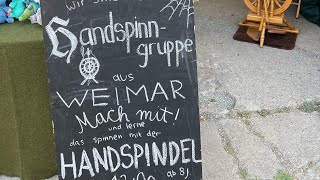 wir sind
Handspinn-
gruppe
aus
WEIMAR
Mach mit!
und lerne
das spinnen mit der
HANDSPINDEL
ab 8J.